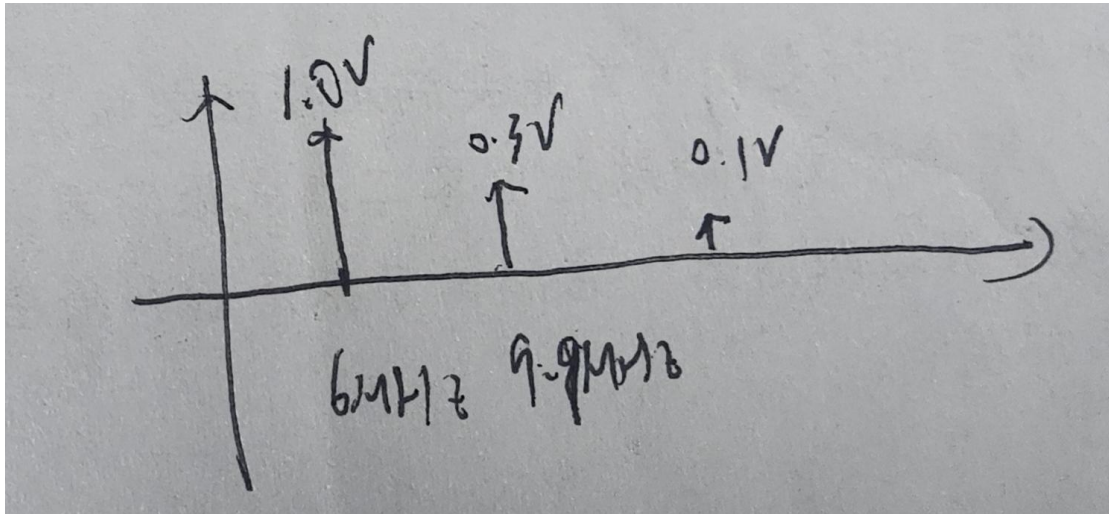 1.0V
0.3V
0.1V
6MHz 9.9MHz